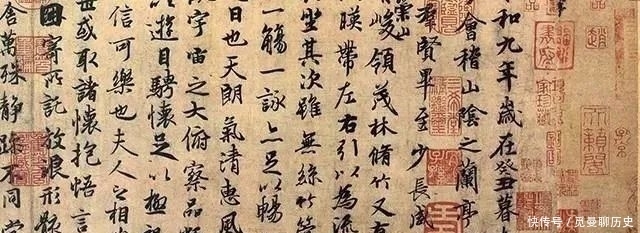 和九年歲在癸丑暮
會稽山陰之蘭亭
羣賢畢至少長咸
崇山
峻領茂林脩竹又有
暎帶左右引以為流
坐其次雖無絲竹
一觴一詠亦足以暢
日也天朗氣清惠風
宇宙之大俯察品
以遊目騁懷足以極
信可樂也夫人之相
或取諸懷抱悟言
因寄所託放浪形骸
萬殊靜躁不同當
快传号/觅曼聊历史